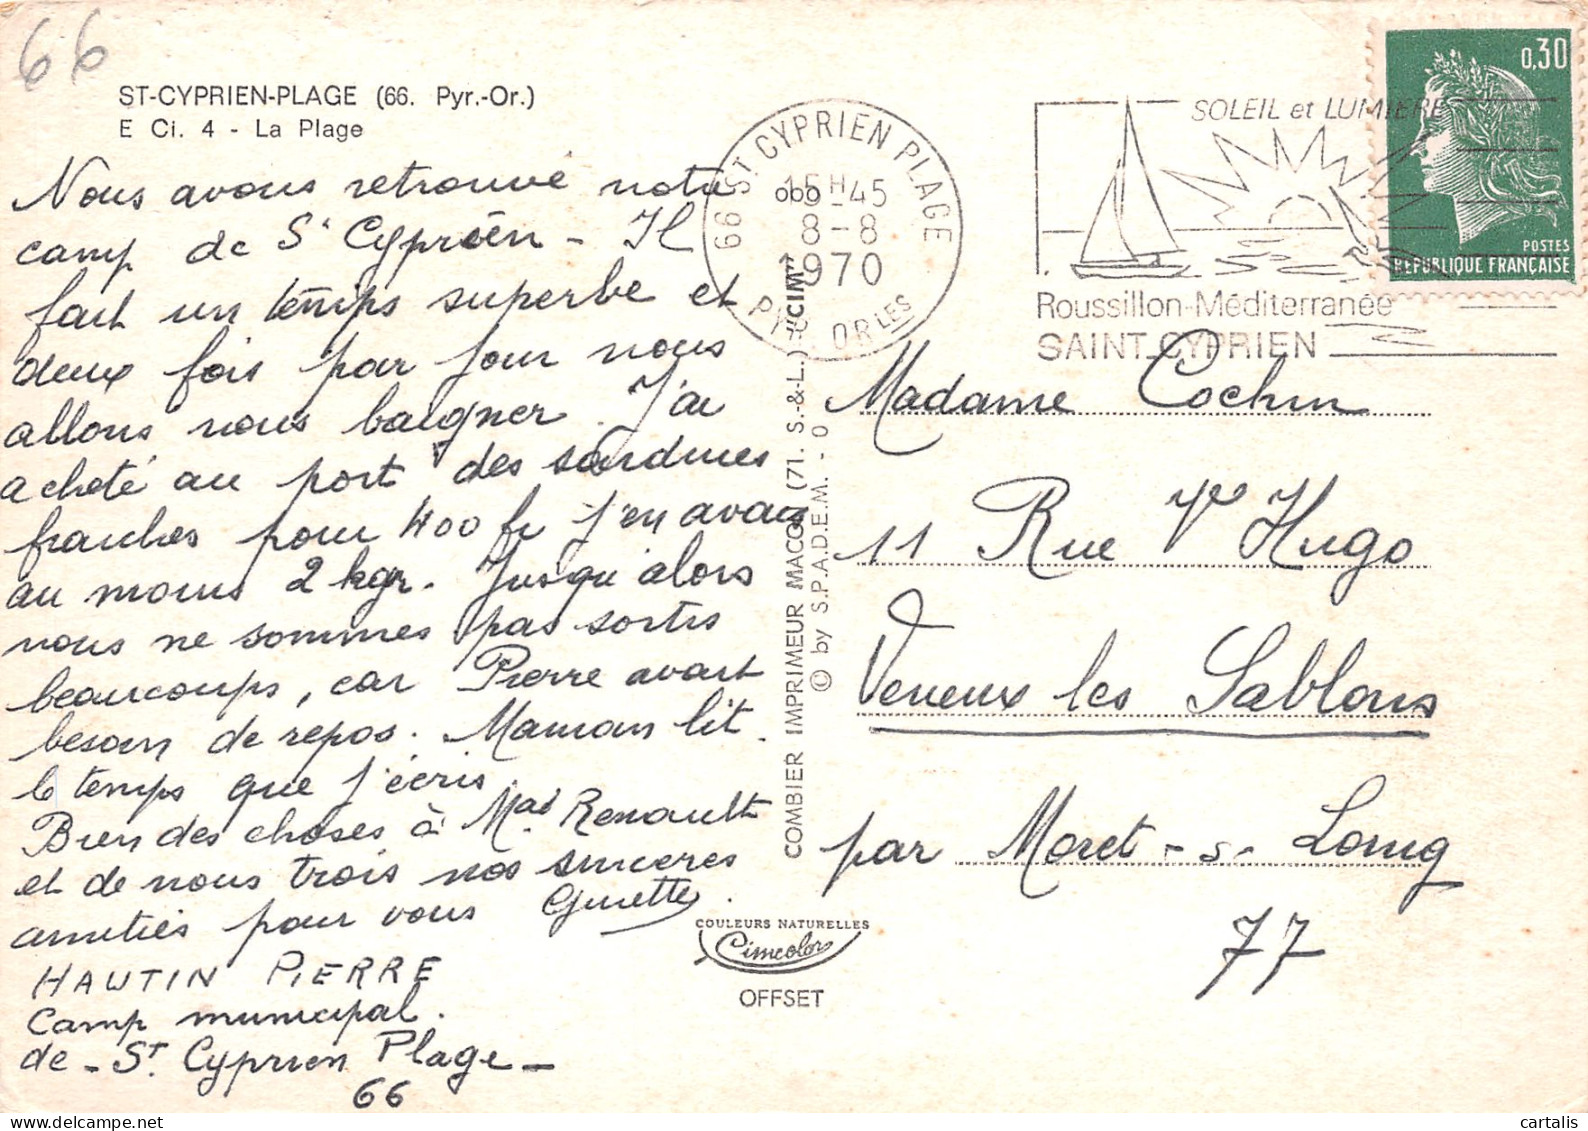 66
ST-CYPRIEN-PLAGE (66. Pyr.-Or.)
E Ci. 4 - La Plage
Nous avons retrouvé notre
camp de St Cyprien - Il
fait un temps superbe et
deux fois par jour nous
allons nous baigner. J'ai
acheté au port des sardines
fraiches pour 400 fr j'en avais
au moins 2 kgr. Jusqu'alors
nous ne sommes pas sortis
beaucoups, car Pierre avait
besoin de repos. Maman lit
le temps que j'écris.
Bien des choses à Mad Renault
et de nous trois nos sinceres
amitiés pour vous Ginette.
HAUTIN PIERRE
Camp municipal.
de - St. Cyprien Plage -
66
66 ST CYPRIEN PLAGE
15H45
8-8
1970
PYR. ORLES
SOLEIL et LUMIERE
Roussillon-Méditerranée
SAINT CYPRIEN
0,30
POSTES
REPUBLIQUE FRANÇAISE
COMBIER IMPRIMEUR MACON (71. S.-&-L.) "CIM"
© by S.P.A.D.E.M. - 0
Madame Cochin
11 Rue Vr Hugo
Veneux les Sablons
par Moret - s - Loing
77
COULEURS NATURELLES
Cimcolor
OFFSET
cartalis